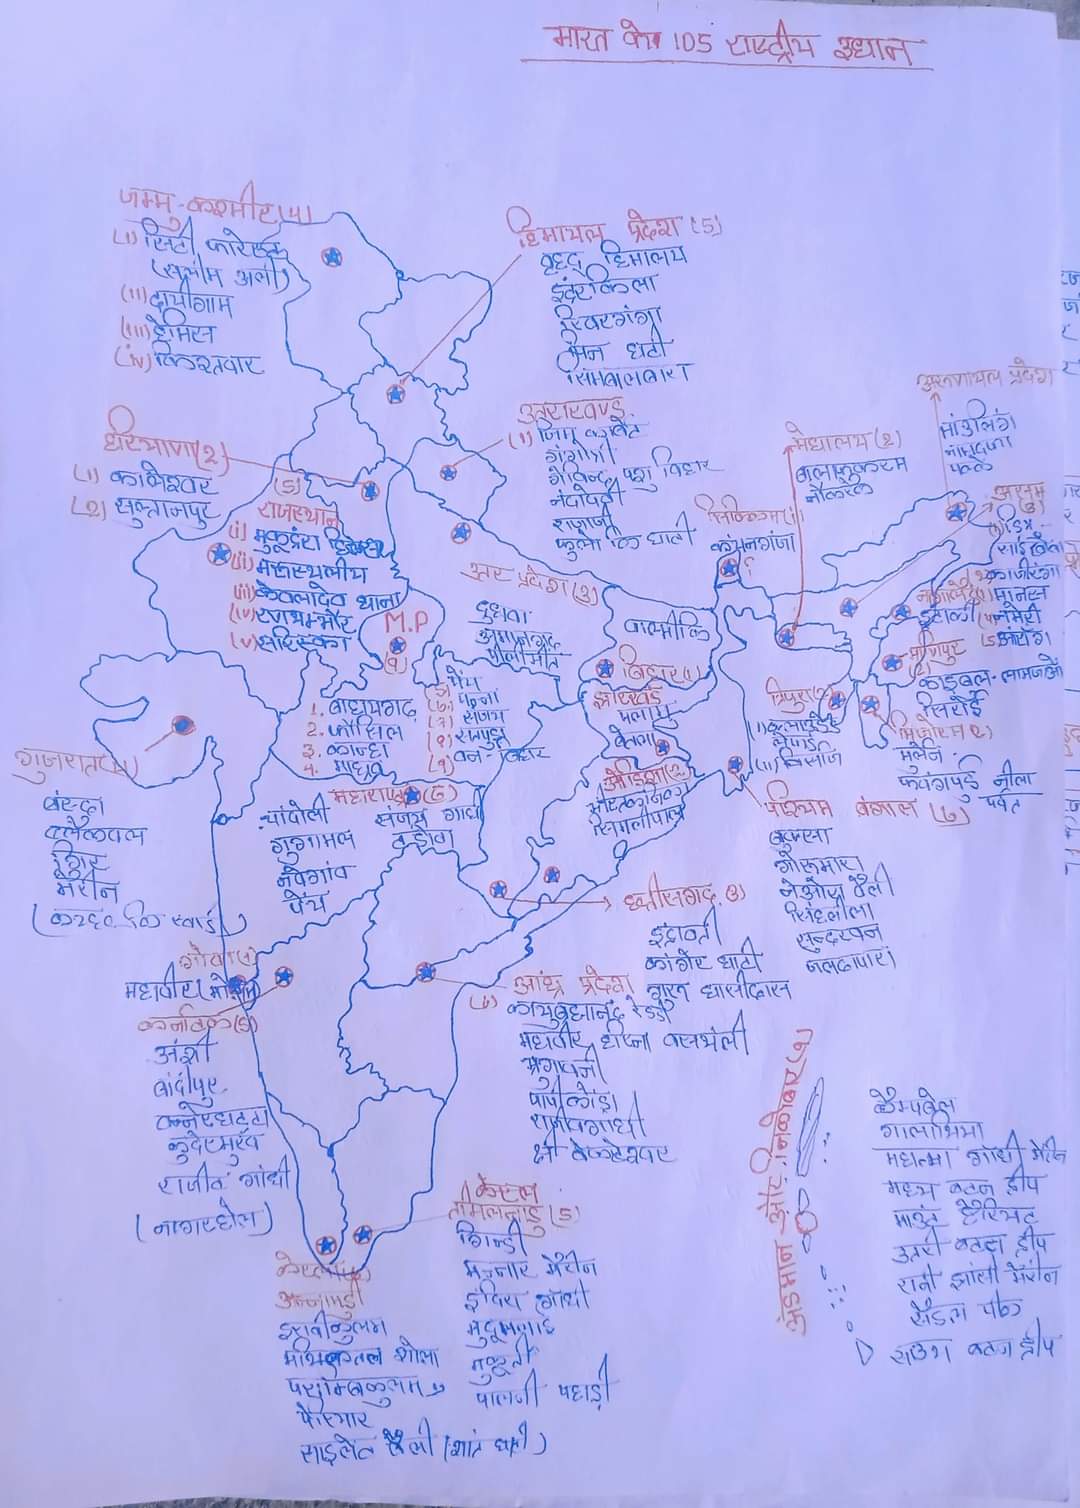 भारत के 105 राष्ट्रीय उधान
जम्मु-कश्मीर (4)
(i) सिटी फोरेस्ट
(सलीम अली)
(ii) दाचीगाम
(iii) हेमिस
(iv) किश्तवार
हिमाचल प्रदेश (5)
वृहद् हिमालय
इंद्रकिला
खिरगंगा
पिन घाटी
सिंमबालबारा
उत्तराखण्ड
(1) जिम कार्बेट
गंगोत्री
गोविन्द पशु विहार
नंदादेवी
राजाजी
फुलो कि घाटी
हरियाणा (2)
(1) कालेश्वर
(2) सुल्तानपुर
(5)
राजस्थान
(i) मुकुंदरा हिल्स
(ii) मरुस्थलीय
(iii) केवलादेव धाना
(iv) रणथम्भौर
(v) सरिस्का
उत्तर प्रदेश (3)
दुधवा
पीलीभीत
M.P
(9)
1. बाधवगढ़
2. फॉसिल
3. कान्हा
4. माधव
(5) पेंच
(6) पन्ना
(7) संजय
(8) सतपुड़ा
(9) वन-विहार
अरुणाचल प्रदेश
मांउलिंग
नामदफा
मेघालय (2)
बालफाकरम
नोकरेक
सिक्किम (1)
कंचनगंजा
असम
काजीरंगा
मानस
नमेरी
ओरांग
नागालैंड (1)
इंटाकी
मणिपुर
(2)
काइबुल-लामजाओ
सिरोई
मिजोरम (2)
मुर्लेन
फवंगपुई नीला
पर्वत
त्रिपुरा (2)
बिहार (1)
वाल्मीकि
झारखंड
पलामु
बेतला
ओडिशा (2)
सिमलीपाल
पश्चिम बंगाल (6)
बुक्सा
गोरूमारा
नेओरा वैली
सिंहलीला
सुन्दरवन
जलदापारा
गुजरात (4)
वंस्दा
ब्लैकबक
गिर
मरीन
(कच्छ कि खाड़ी)
महाराष्ट्र (6)
चांदोली
गुगामल
नवेगांव
पेंच
संजय गांधी
ताडोबा
छत्तीसगढ़ (3)
इंद्रावती
कांगेर घाटी
गुरु घासीदास
गोवा (1)
महावीर (मोलेम)
कर्नाटक (5)
अंशी
बांदीपुर
बन्नेरघट्टा
कुदेरमुख
राजीव गांधी
(नागरहोल)
आंध्र प्रदेश
(6)
कासुब्रह्मानंद रेड्डी
महावीर हरिना वसथंली
मृगावनी
पापीकोंडा
राजीवगांधी
श्री वेंकटेश्वर
केरल
तामिलनाडु (5)
गिन्डी
मन्नार मेरीन
इंदिरा गांधी
मुदुमलाई
मुकुर्ती
पालनी पहाड़ी
अन्नामुडी
इरावीकुलम
मथिकेतल शोला
पराम्बिकुलम
पेरियार
साइलेंट वैली (शांत घाटी)
अंडमान और निकोबार (9)
कैम्पबेल
गालाथिया
महात्मा गांधी मेरिन
मध्य बटन द्वीप
माउंट हैरियट
उत्तरी बटन द्वीप
रानी झांसी मेरीन
सैडल पीक
साउथ बटन द्वीप